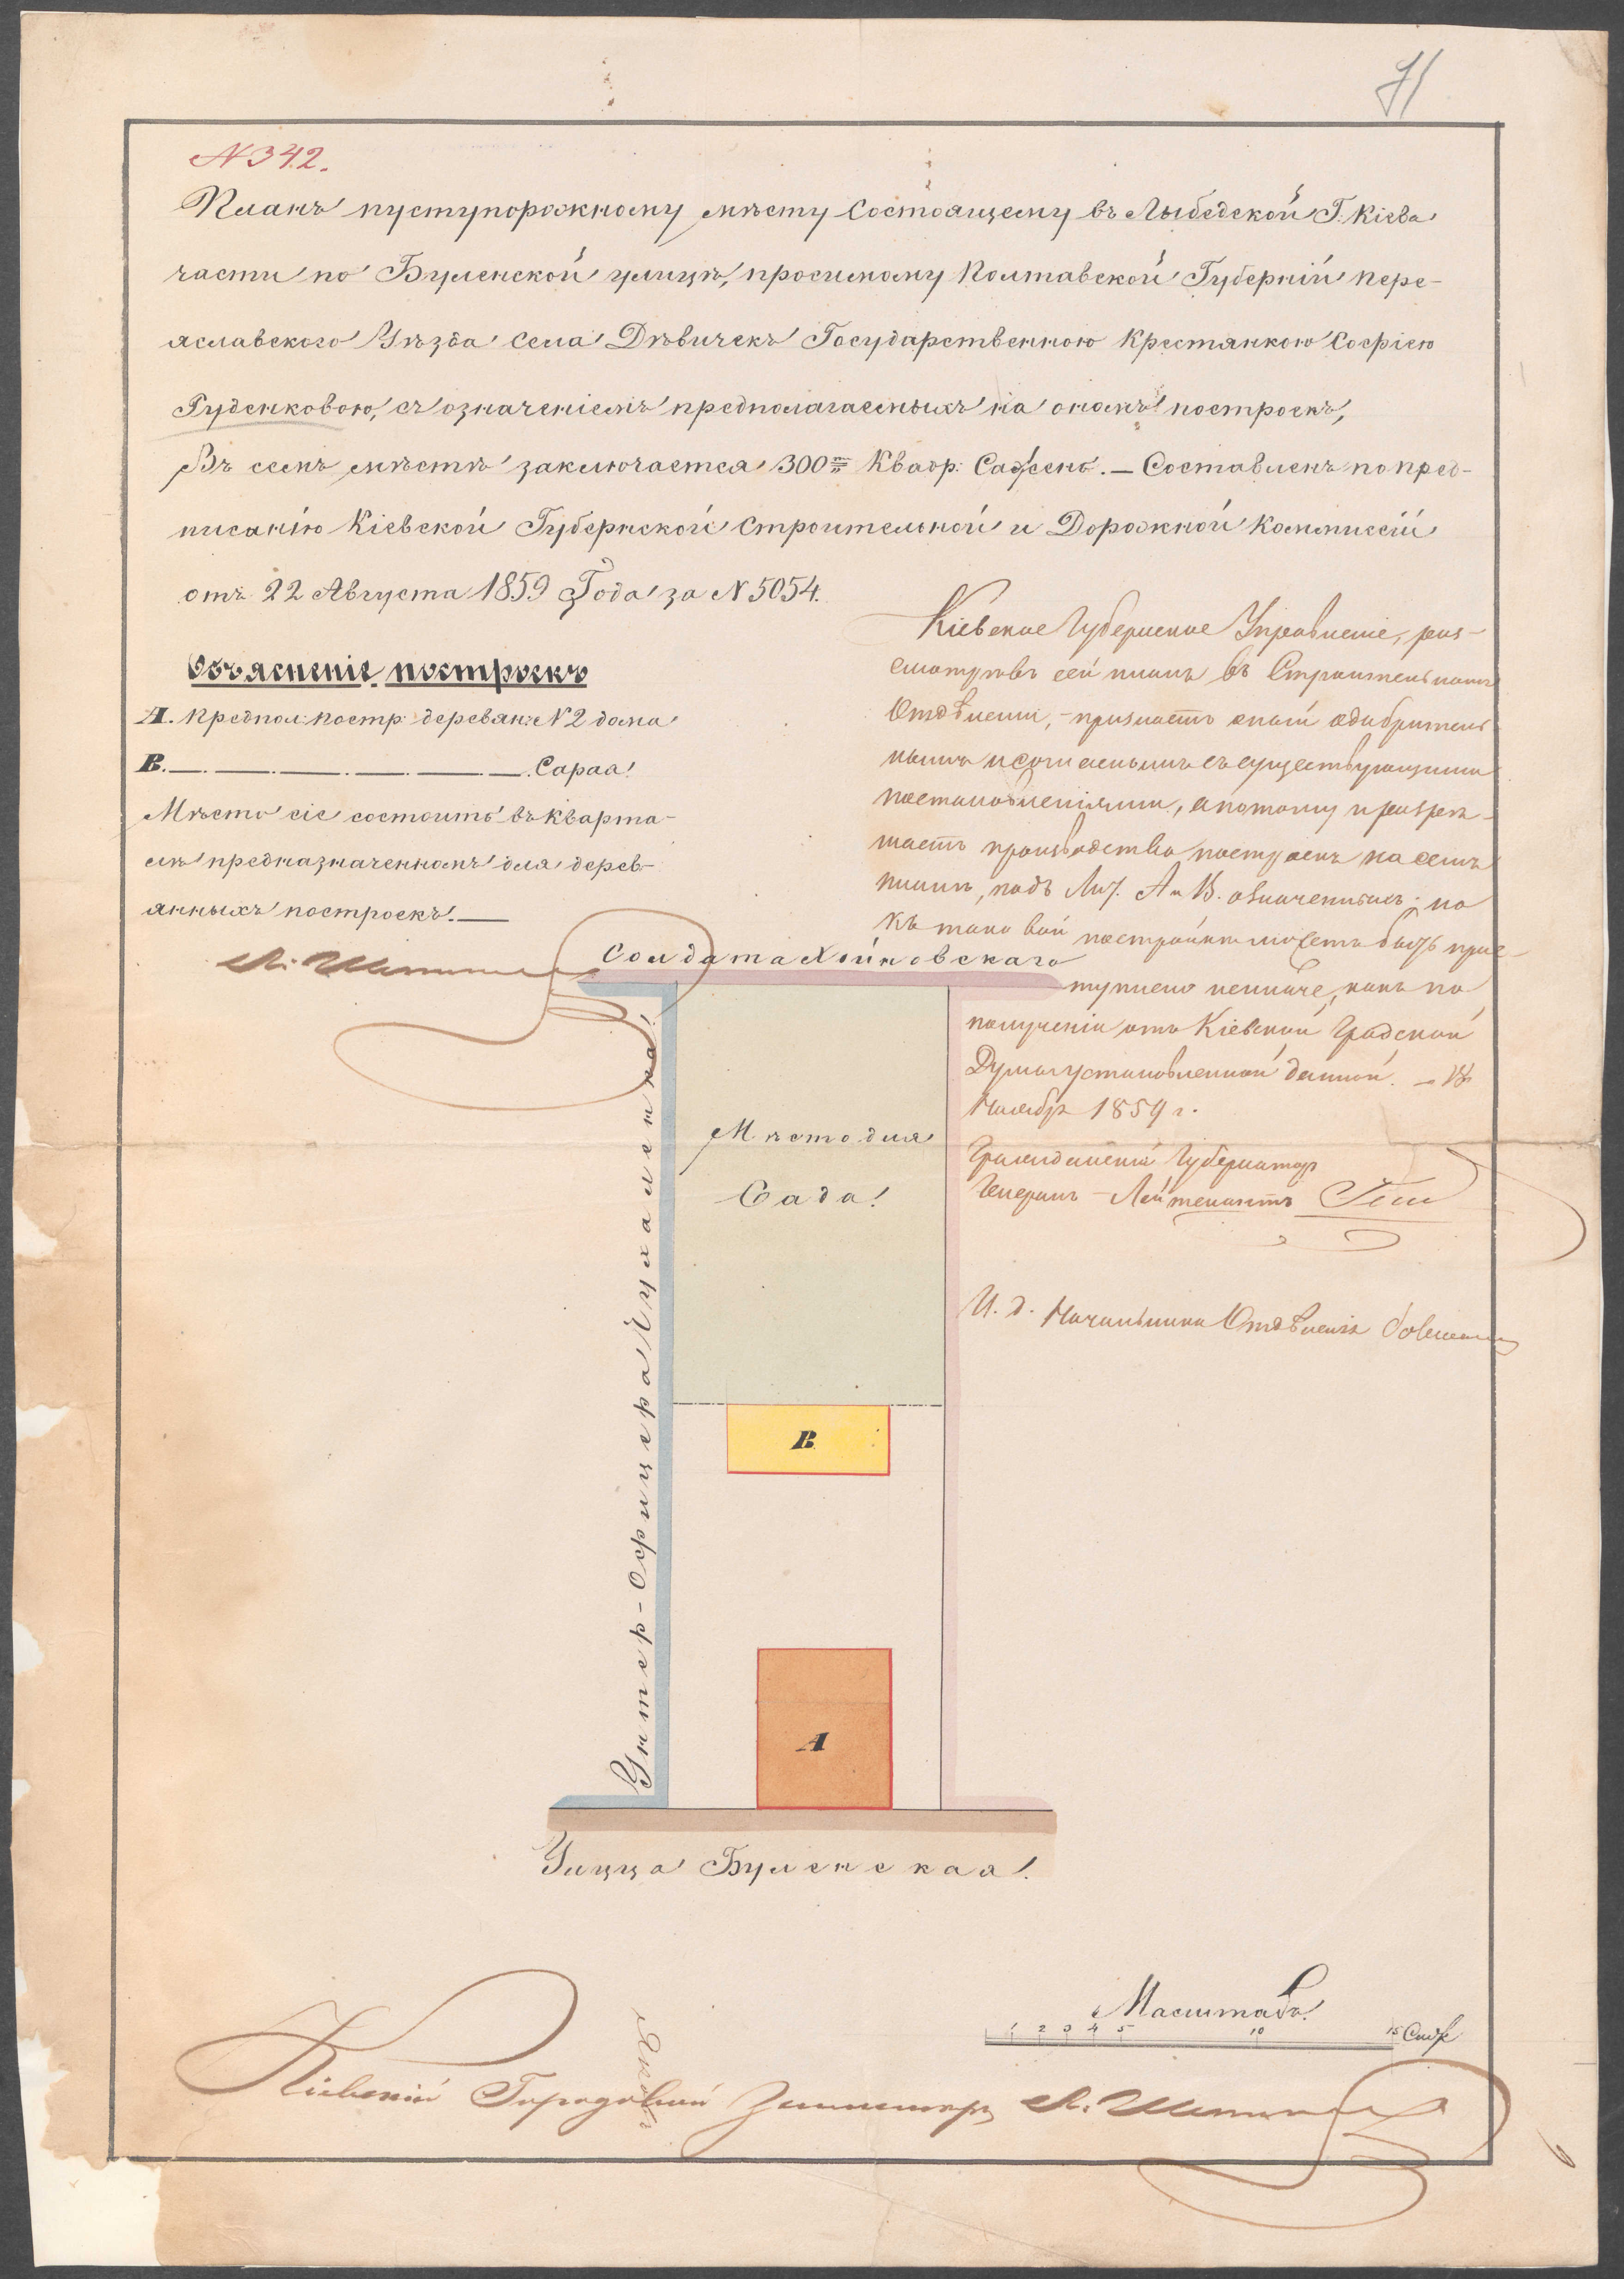 71
№ 342.
Планъ пуступорожному мѣсту состоящему въ Лыбедской Г. Кіева
части по Бульонской улицѣ, просимому Полтавской Губерніи Пере-
яславского Уѣзда села Дѣвичекъ Государственною Крестянкою Софіею
Руденковою, съ означеніемъ предполагаемыхъ на ономъ построекъ,
Въ семъ мѣстѣ заключается 300 Квадр: Саженъ. — Составленъ по пред-
писанію Кіевской Губернской Строительной и Дорожной Коммисіи
отъ 22 Августа 1859 Года за N 5054.
Объясненіе построекъ
А. Предпол: постр: деревян: N 2 дома
В. —. —. —. —. —. —. Сарая
Мѣсто сіе состоитъ въ кварта-
лѣ предназначенномъ для дерев-
янныхъ построекъ. —
Кіевское Губернское Управленіе, раз-
смотрѣвъ сей планъ въ Строительномъ
Отдѣленіи, - признаетъ оный одобритель-
нымъ и согласнымъ съ существующими
постановленіями, а потому и разрѣ-
шаетъ производство построекъ на семъ
планѣ, подъ Лит. А и В. означенныхъ; но
къ таковой постройкѣ можетъ быть прис-
туплено неиначе, какъ по
полученіи отъ Кіевской Градской
Думы установленной данной. —
Ноября 1859 г.
Гражданскій Губернаторъ
Генералъ - Лейтенантъ Гессе
И. д. Начальника Отдѣленія
Солдата Хойновскаго
Унтер-Офицера Чухаленка
Мѣсто для
Сада
В
А
Улица Бульонская
Масштабъ
1 2 3 4 5 10 15 Саж
Кіевскій Городовой Землемѣръ